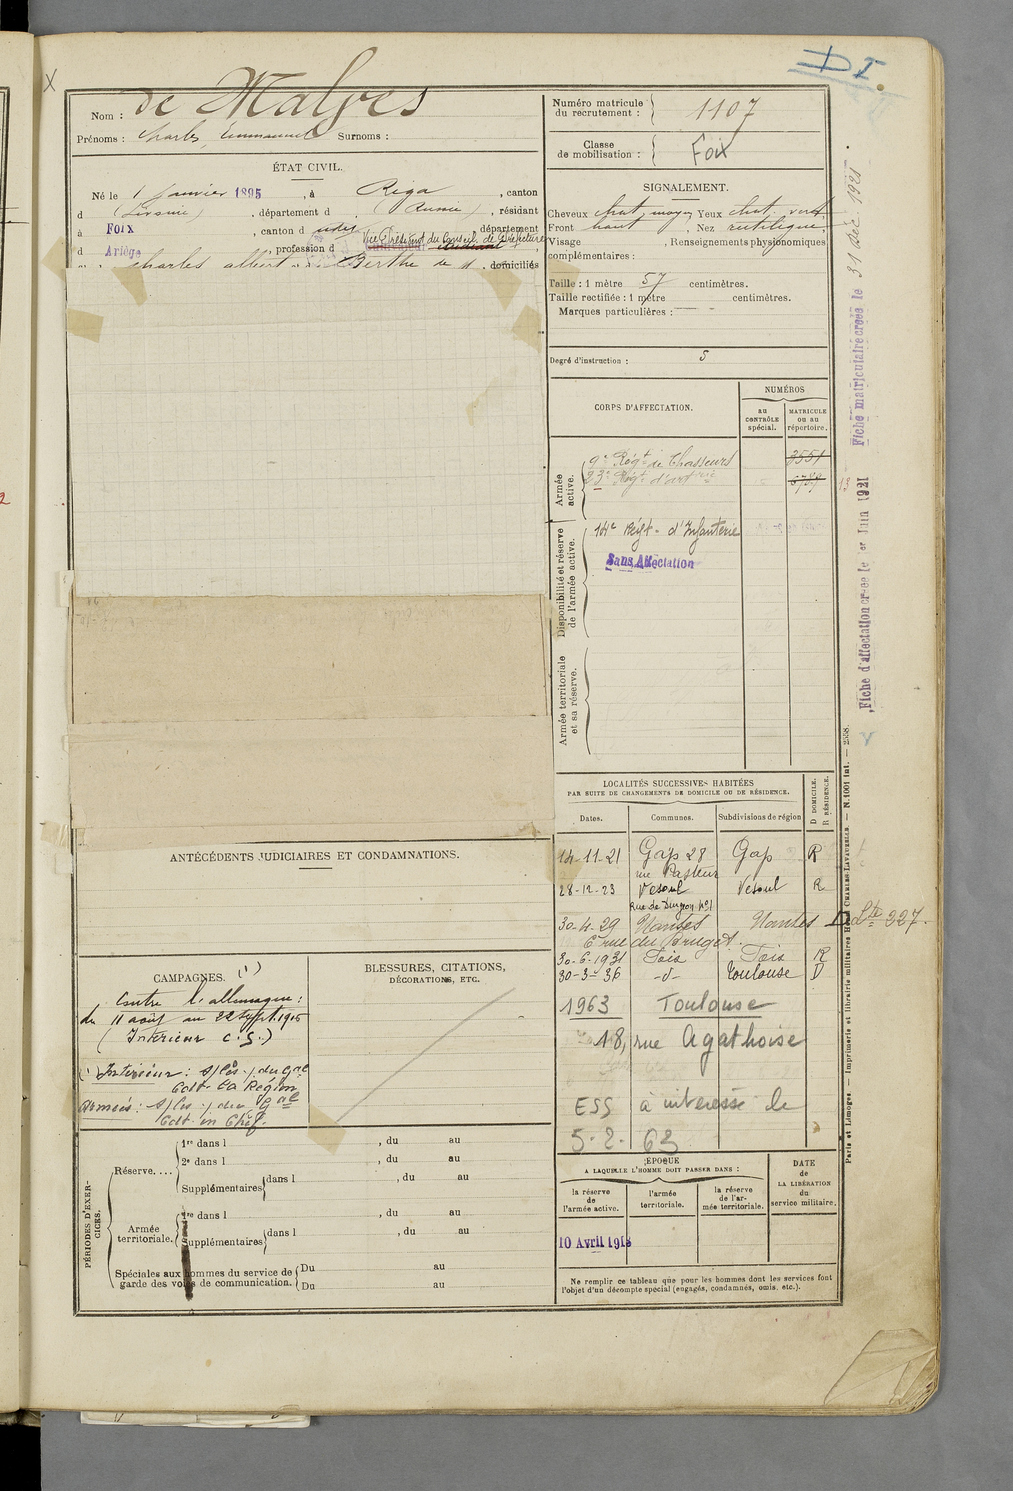 D I
Nom : de Malves
Prénoms : Charles, Emmanuel Surnoms :
ÉTAT CIVIL.
Né le 1 Janvier 1895, à Riga, canton
d (Livonie), département d (Russie), résidant
à FOIX, canton d dudit, département
d Ariège, profession d Vice Président du Conseil de Préfecture
charles albert Berthe de M. domiciliés
Numéro matricule du recrutement : 1107
Classe de mobilisation : Foix
SIGNALEMENT.
Cheveux chat. moyen Yeux chat. vert
Front haut, Nez rectiligne,
Visage , Renseignements physionomiques
complémentaires :
Taille : 1 mètre 57 centimètres.
Taille rectifiée : 1 mètre centimètres.
Marques particulières :
Degré d'instruction : 5
CORPS D'AFFECTATION.
NUMÉROS
au CONTRÔLE spécial.
MATRICULE ou au répertoire.
Armée active.
9e Régt de Chasseurs 3551
23e Régt d'artrie
Disponibilité et réserve de l'armée active.
14e Régt d'Infanterie
Sans Affectation
Armée territoriale et sa réserve.
LOCALITÉS SUCCESSIVES HABITÉES
PAR SUITE DE CHANGEMENTS DE DOMICILE OU DE RÉSIDENCE.
Dates. Communes. Subdivisions de région D DOMICILE. R RÉSIDENCE.
14-11-21 Gap 28 Gap R
rue Pasteur
28-12-23 Vesoul Vesoul R
Rue de Durgeon N°1
30-4-29 Nantes Nantes D Lte 227.
6 rue du Brugot.
30-6-1931 Foix Foix R
30-3-36 -d- Toulouse D
1963 Toulouse
18, rue Agathoise
ESS à intéressé le
5-2-63
ANTÉCÉDENTS JUDICIAIRES ET CONDAMNATIONS.
CAMPAGNES. (1)
Contre l'allemagne :
du 11 août au 22 Sept. 1915
(Intérieur C.S.)
(1) Intérieur : S/les . du Gal
Cdt la Région
Armées : S/les . du Gal
Cdt en Chef.
BLESSURES, CITATIONS,
DÉCORATIONS, ETC.
PÉRIODES D'EXERCICES.
Réserve....
1re dans l , du au
2e dans l , du au
Supplémentaires dans l , du au
Armée territoriale.
1re dans l , du au
Supplémentaires dans l , du au
Spéciales aux hommes du service de garde des voies de communication.
Du au
Du au
ÉPOQUE
A LAQUELLE L'HOMME DOIT PASSER DANS :
la réserve de l'armée active.
l'armée territoriale.
la réserve de l'armée territoriale.
DATE de LA LIBÉRATION du service militaire.
10 Avril 1918
Ne remplir ce tableau que pour les hommes dont les services font
l'objet d'un décompte spécial (engagés, condamnés, omis, etc.).
Fiche matriculaire créée le 31 Déc. 1921
Fiche d'affectation créée le 1er Juin 1921
Paris et Limoges. — Imprimerie et librairie militaires Henri CHARLES-LAVAUZELLE. — N. 1001 int. — 2558.